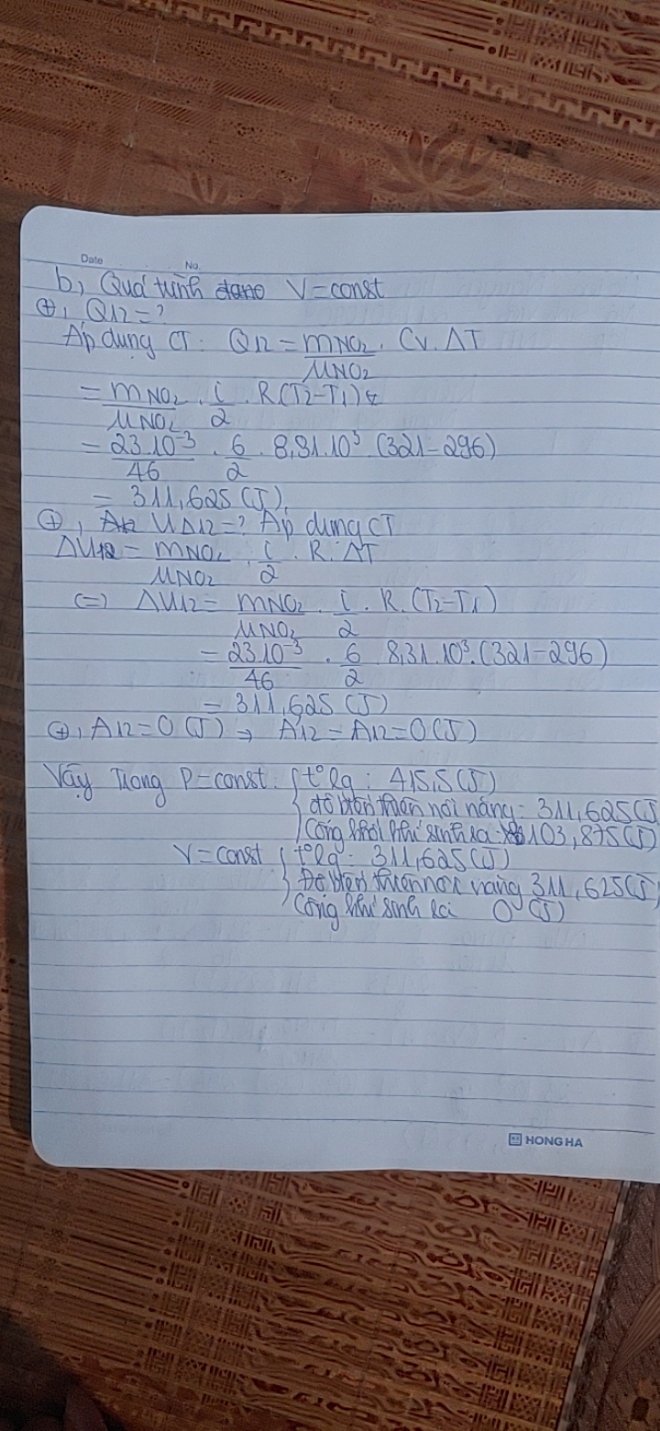 Date No.
b, Quá trình V=const
⊕, Q12=?
Áp dụng CT: Q12 = mNO2/μNO2 . Cv. ΔT
= mNO2/μNO2 . i/2 . R(T2-T1)
= 23.10^-3/46 . 6/2 . 8,31.10^3 (321-296)
= 311,625 (J).
⊕, UΔ12=? Áp dụng CT
ΔU12 = mNO2/μNO2 . i/2 . R. ΔT
(=) ΔU12 = mNO2/μNO2 . i/2 . R. (T2-T1)
= 23.10^-3/46 . 6/2 8,31.10^3. (321-296)
= 311,625 (J)
⊕, A12=0 (J) → A'12 = A12=0(J)
Vậy Trong P=const: { t°lg: 415,5(J)
độ biến thiên nội năng: 311,625(J
Công khối khí sinh ra: 103,875(J)
V=const { t°lg: 311,625(J)
Độ biến thiên nội năng 311,625(J)
Công khí sinh ra 0 (J)
HONG HA